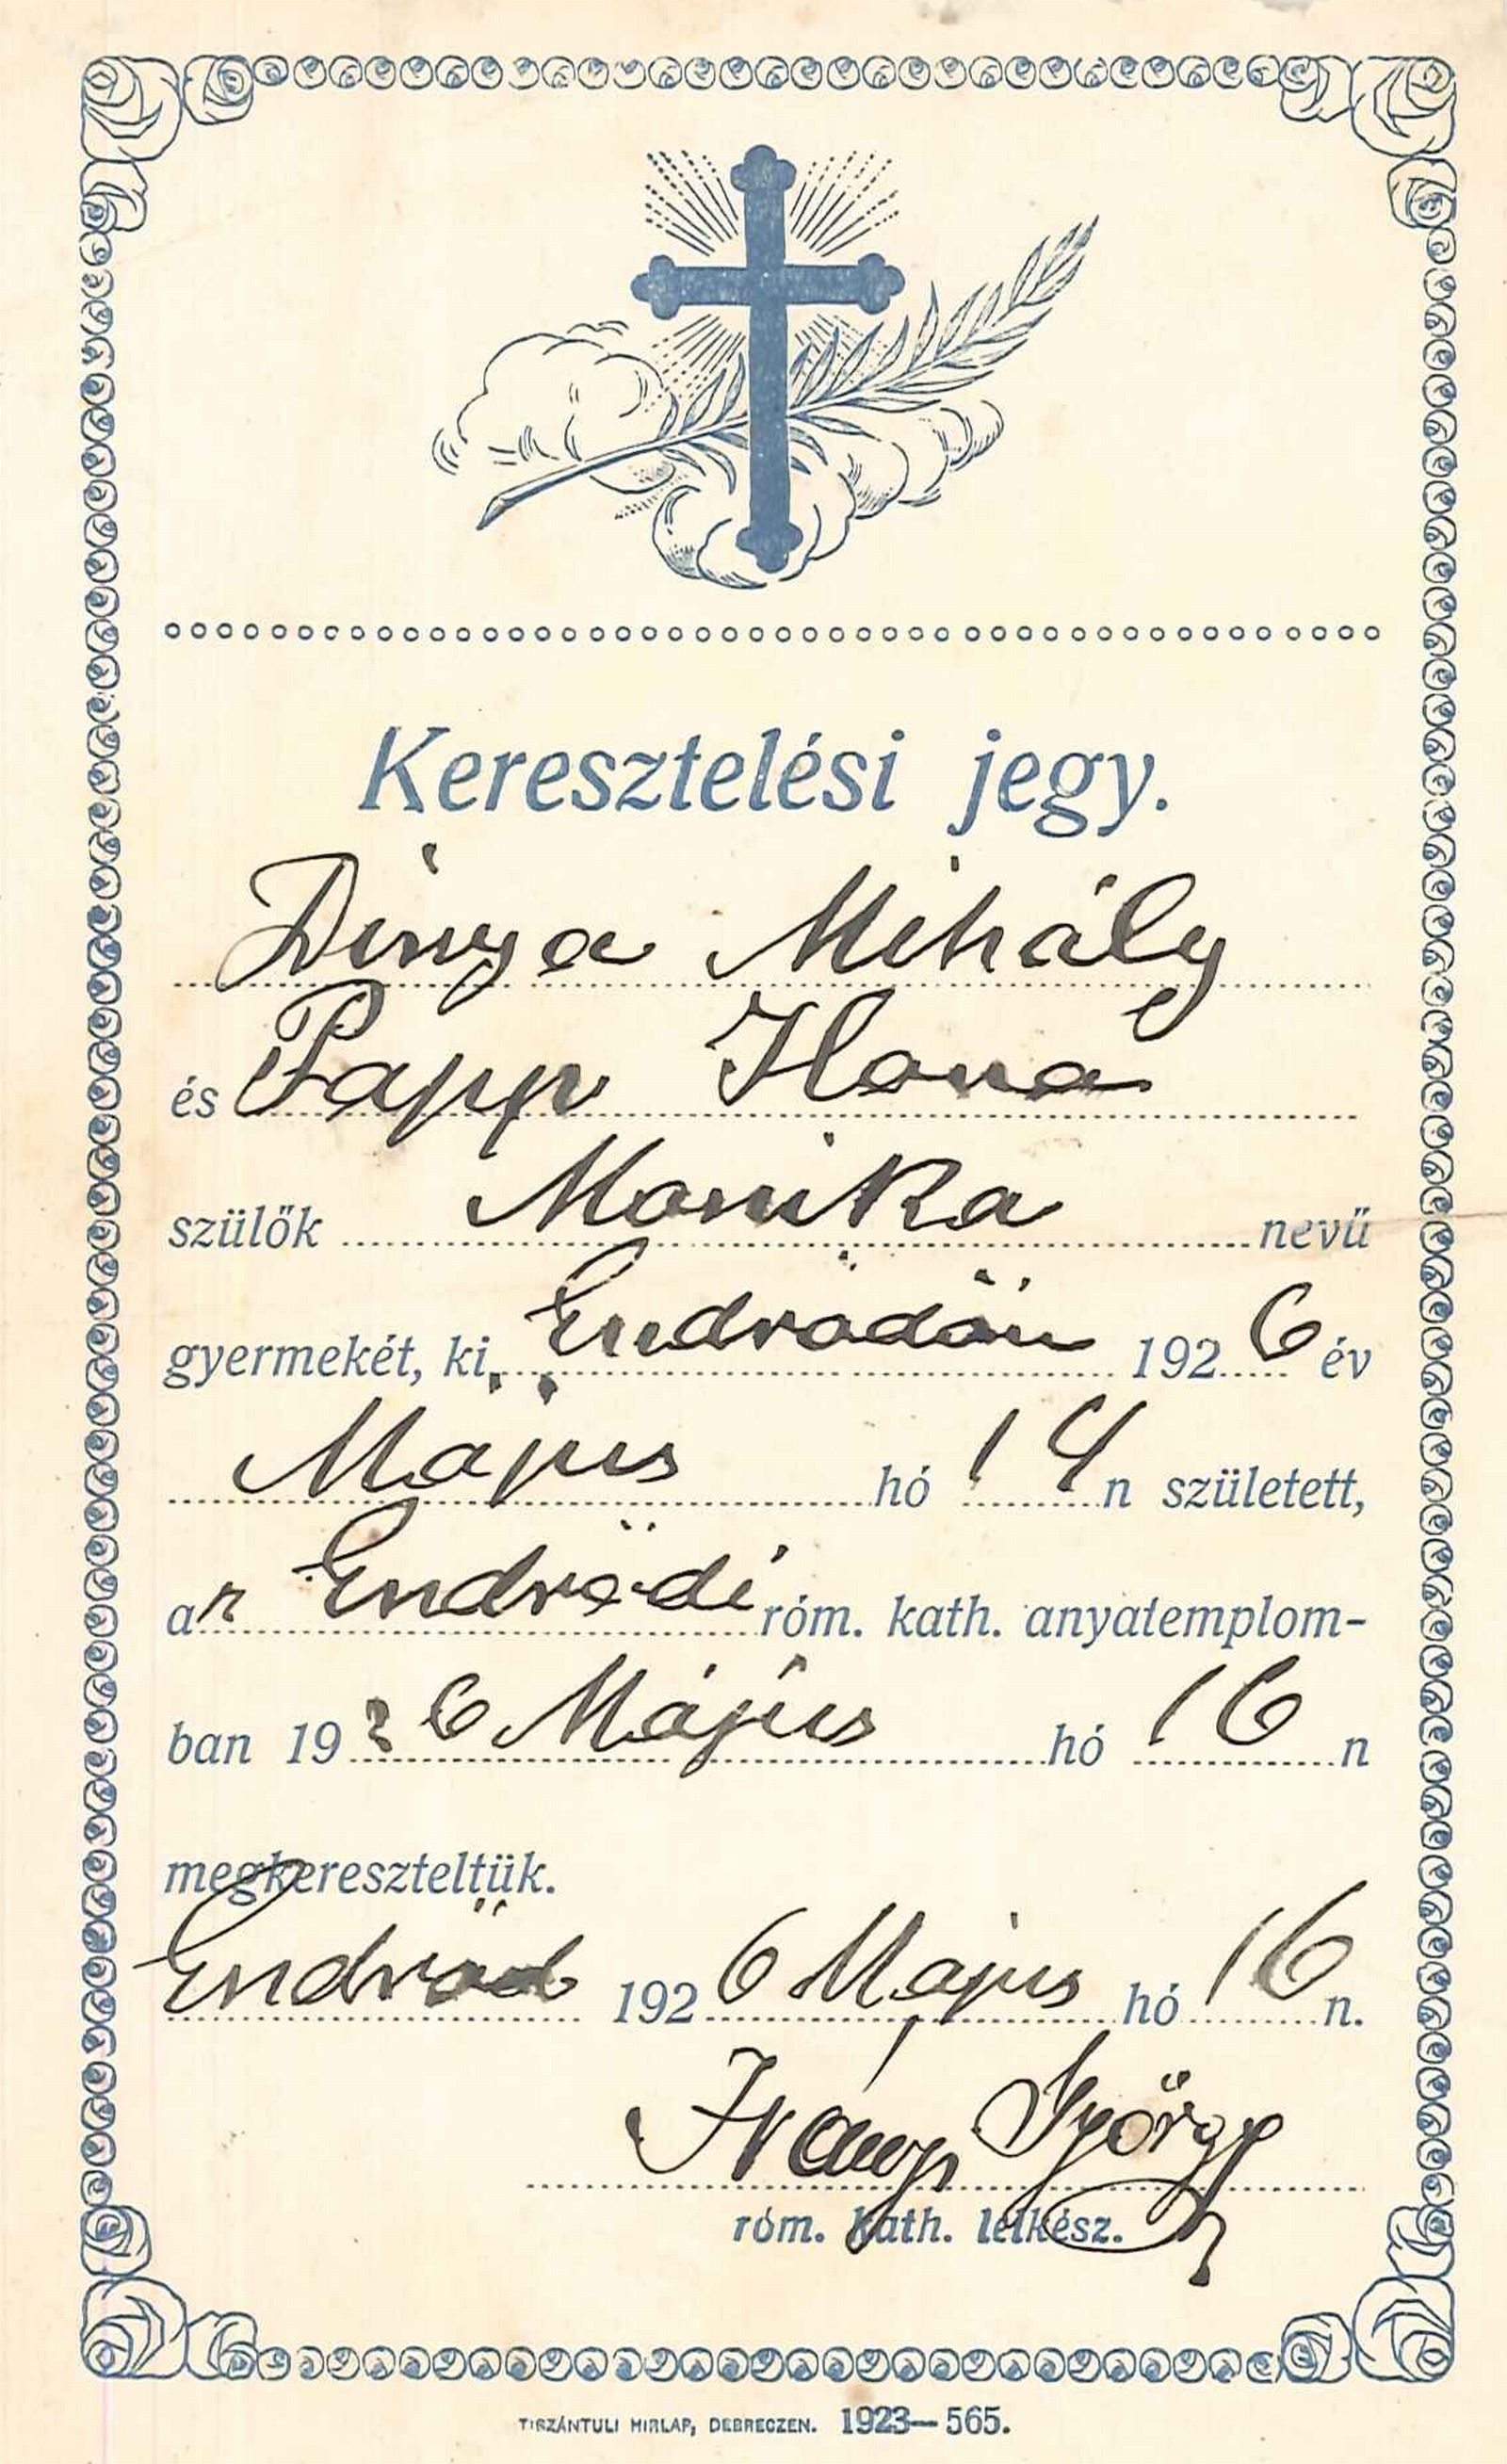 Keresztelési jegy.
Dinya Mihály
és Papp Ilona
szülők Monika nevű
gyermekét, ki Endrődön 1926 év
Május hó 14n született,
az Endrődi róm. kath. anyatemplom-
ban 1926 Május hó 16 n
megkereszteltük.
Endrőd 1926 Május hó 16 n.
Iványi György
róm. kath. lelkész.
TISZÁNTULI HIRLAP, DEBRECZEN. 1923—565.